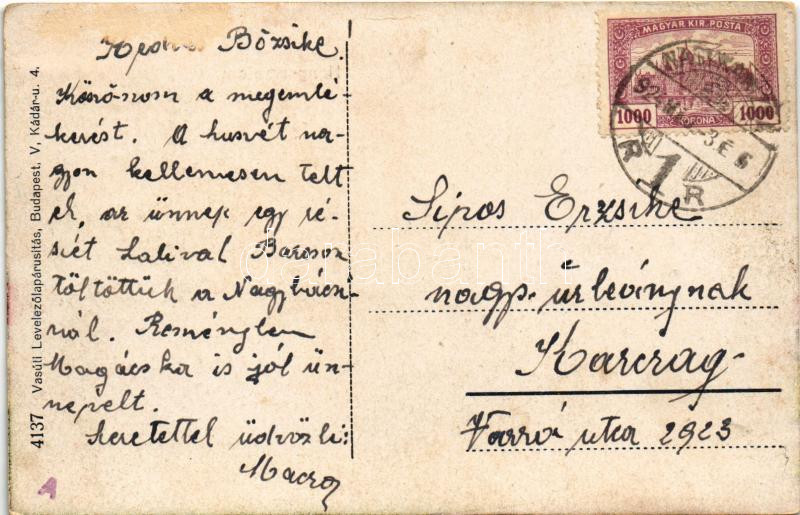 Kedves Bözsike.
Köszönom a megemlé-
kerést. A husvét na-
gyon kellemesen telt
el, az ünnep egy ré-
szét Lalival Barcson
töltöttük a Nagybácsi-
nál. Reménylem
Magácska is jól ün-
nepelt.
Szeretettel üdvözli:
4137 Vasúti Levelezőlapárusítás, Budapest, V, Kádár-u. 4.
MAGYAR KIR. POSTA
1000 KORONA 1000
Sipos Erzsike
nagp. úrleánynak
Karczag
Varró utca 2923
A
darabanth